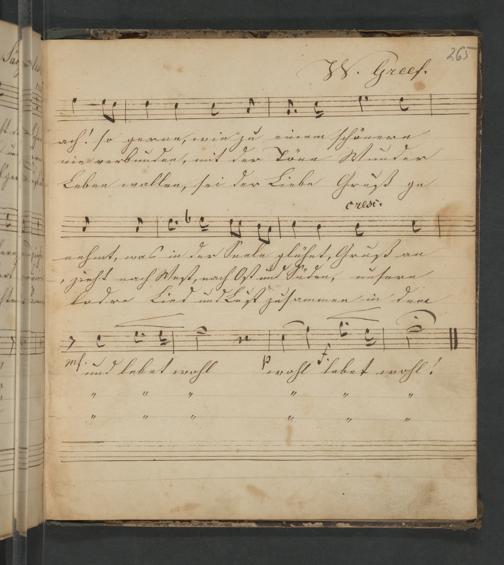 265
W. Greef.
ach! so gerne, wie zu einem schönern
nie verbunden, mit der Töne Wunder
Leben wallen, sei der Liebe Gruß ge
cresc.
nehmt, was in der Seele glühet, Gruß an
, zieht nach West, nach Ost und Süden, unsere
Lied und Lust zusammen in dem
mf und lebet wohl p wohl f. lebet wohl!
" " " " " "
" " " " " "